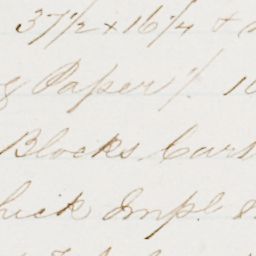 37 1/2 x 16 1/4 +
Paper /. 10
Blocks Cart
hick Impl &